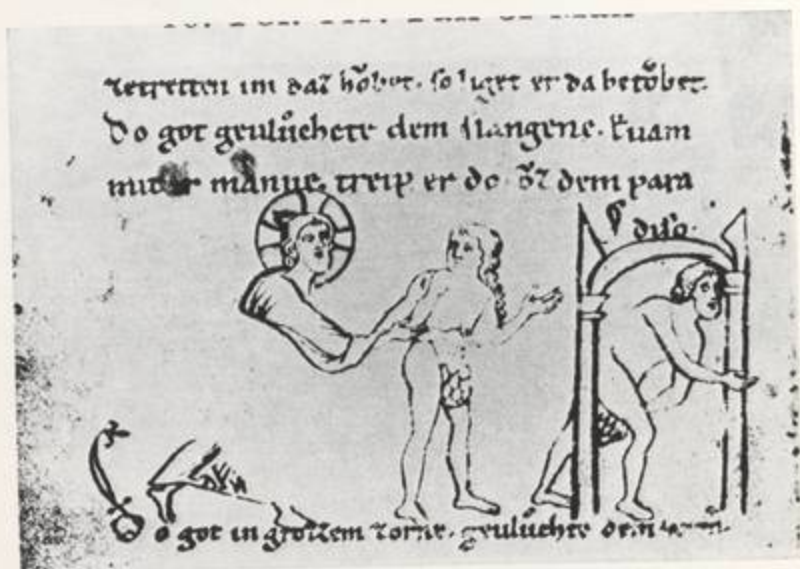 zetretten im daz hobet. so liget er da betobet.
Do got geuluͦchete dem slangene. kuam
manne. treip er do dem para
diso.
Do got in grozzem zorne. geuluͦchte